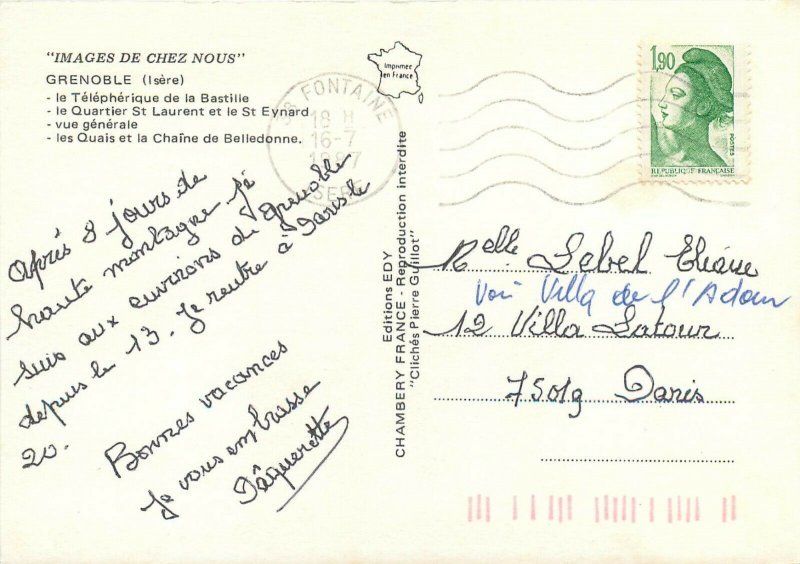 "IMAGES DE CHEZ NOUS"
GRENOBLE (Isère)
- le Téléphérique de la Bastille
- le Quartier St Laurent et le St Eynard
- vue générale
- les Quais et la Chaîne de Belledonne.
Imprimée
en France
38 FONTAINE
18 H
16-7
1987
ISERE
1,90
POSTES
REPUBLIQUE FRANÇAISE
Après 8 jours de
haute montagne je
suis aux environs de Grenoble
depuis le 13. Je rentre à Paris le
20.
Bonnes vacances
Je vous embrasse
Pâquerette
Editions EDY
CHAMBERY FRANCE - Reproduction interdite
"Clichés Pierre Guillot"
Melle Lebel Eliane
voir Villa de l'Adour
12 Villa Latour
75019 Paris